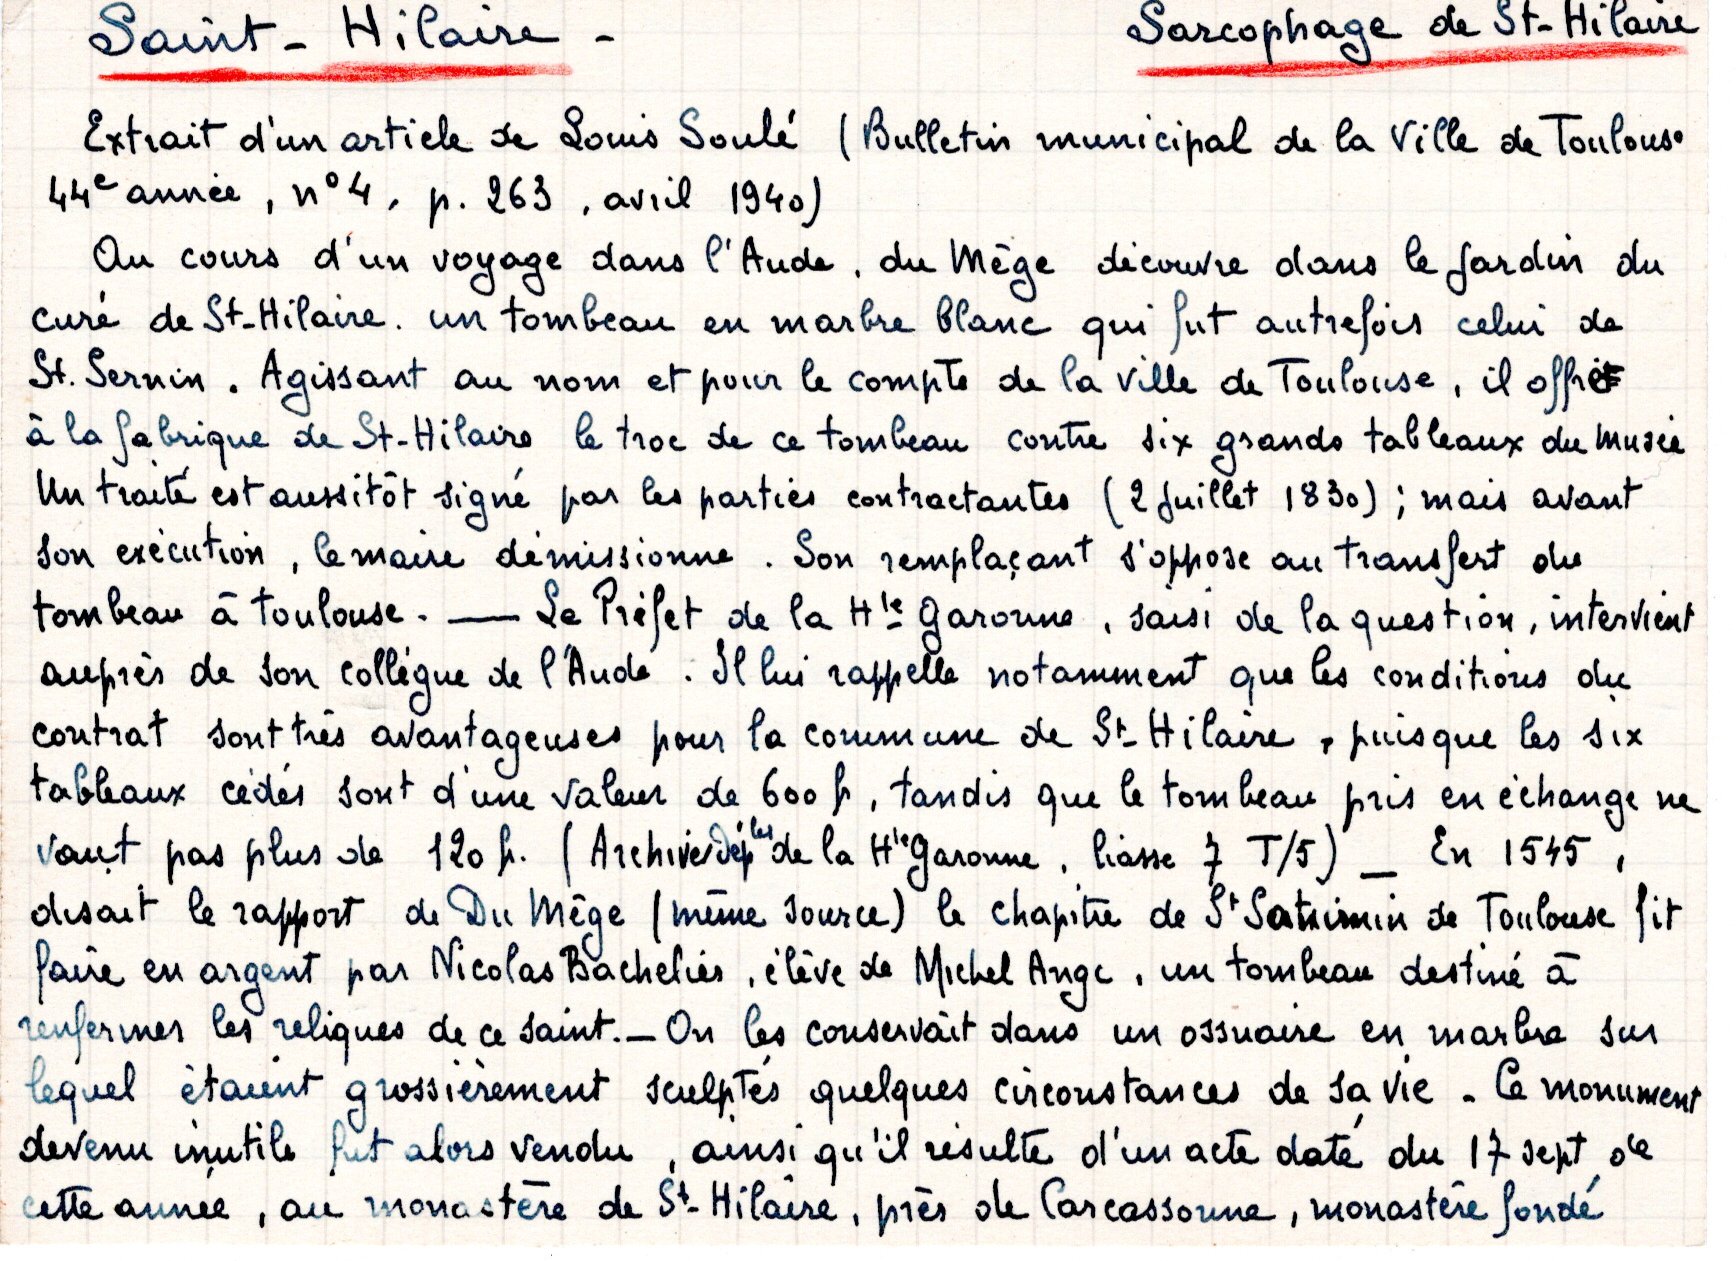 Saint-Hilaire - Sarcophage de St-Hilaire
Extrait d'un article de Louis Soulé (Bulletin municipal de la Ville de Toulouse
44e année, n°4, p. 263, avril 1940)
Au cours d'un voyage dans l'Aude, du Mège découvre dans le jardin du
curé de St-Hilaire. un tombeau en marbre blanc qui fut autrefois celui de
St. Sernin. Agissant au nom et pour le compte de la ville de Toulouse, il offre
à la fabrique de St-Hilaire le troc de ce tombeau contre six grands tableaux du Musée
Un traité est aussitôt signé par les parties contractantes (2 juillet 1830); mais avant
son exécution, le maire démissionne. Son remplaçant s'oppose au transfert du
tombeau à Toulouse. — Le Préfet de la Hte Garonne, saisi de la question, intervient
auprès de son collègue de l'Aude. Il lui rappelle notamment que les conditions du
contrat sont très avantageuses pour la commune de St-Hilaire, puisque les six
tableaux cédés sont d'une valeur de 600 f, tandis que le tombeau pris en échange ne
vaut pas plus de 120 f. (Archives Déples de la Hte Garonne, liasse 7 T/5) — En 1545,
disait le rapport de Du Mège (même source) le chapitre de St Saturnin de Toulouse fit
faire en argent par Nicolas Bachelier, élève de Michel Ange, un tombeau destiné à
renfermer les reliques de ce saint. — On les conservait dans un ossuaire en marbre sur
lequel étaient grossièrement sculptés quelques circonstances de sa vie - Ce monument
devenu inutile fut alors vendu, ainsi qu'il résulte d'un acte daté du 17 sept de
cette année, au monastère de St-Hilaire, près de Carcassonne, monastère fondé